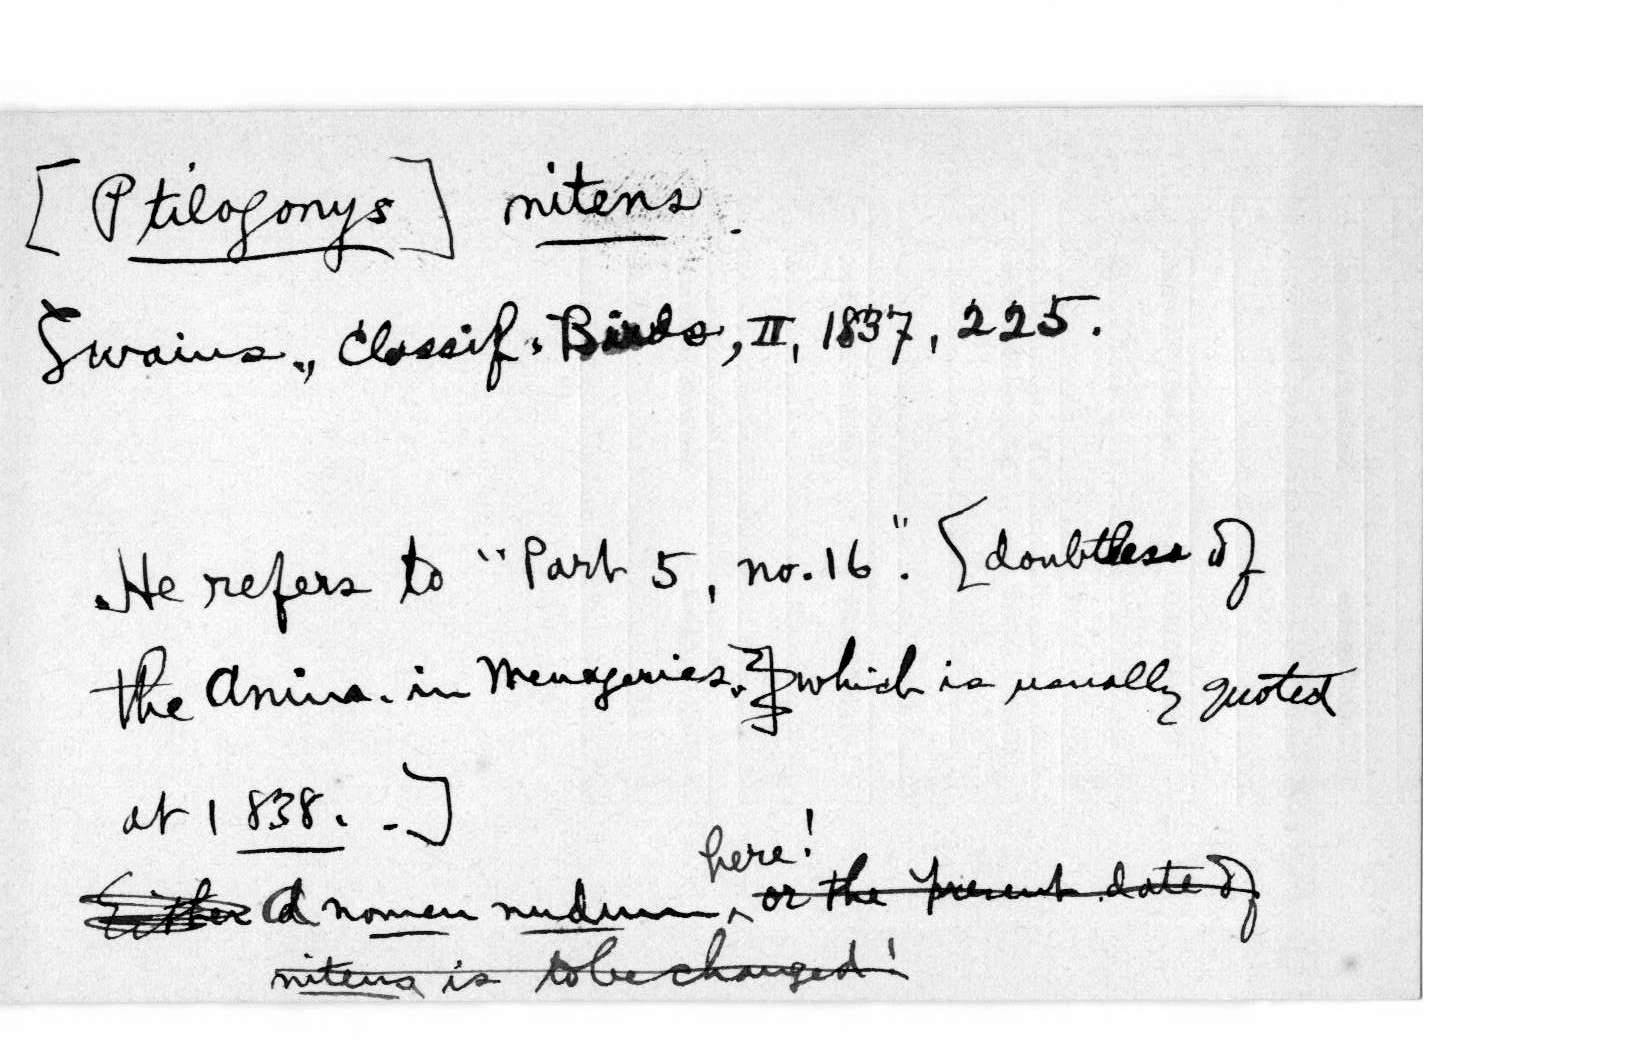 [Ptilogonys] nitens.
Swains., Classif. Birds, II, 1837, 225.
He refers to "Part 5, no. 16". [doubtless of
the Anim. in Menageries.] which is usually quoted
at 1838. -]
here!
Either A nomen nudum ^ or the present date of
nitens is to be changed!